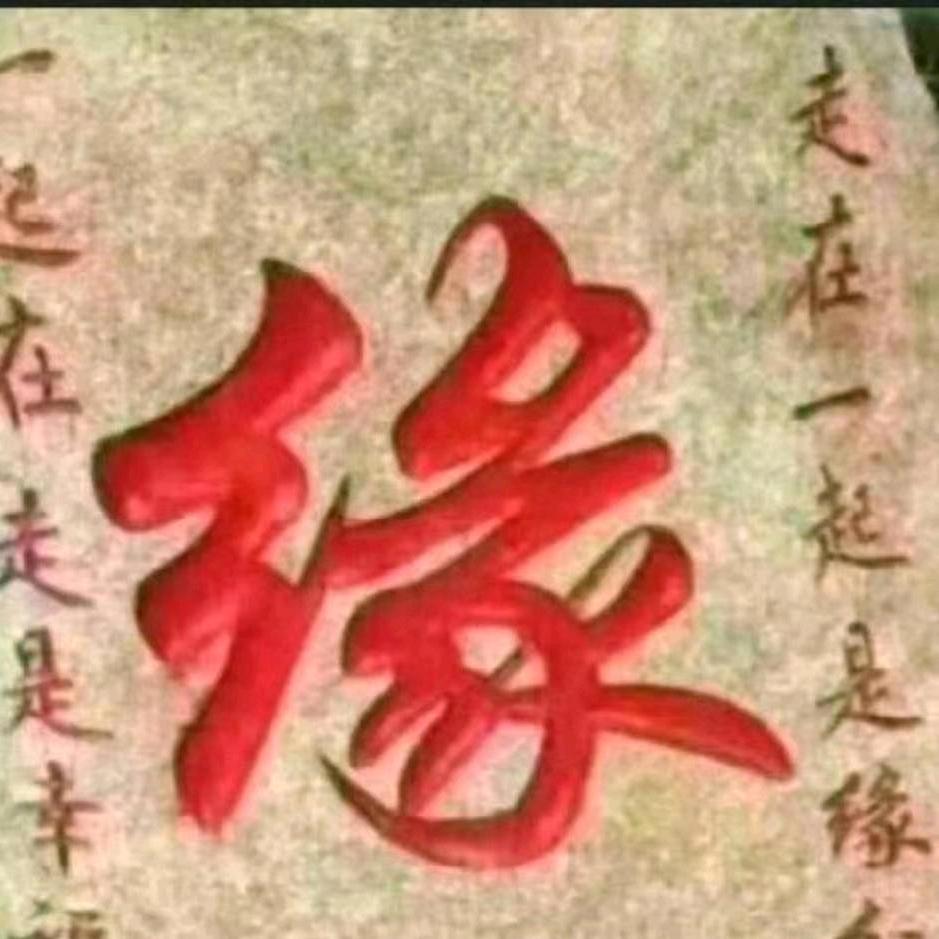 走在一起是缘
缘
一起在走是幸